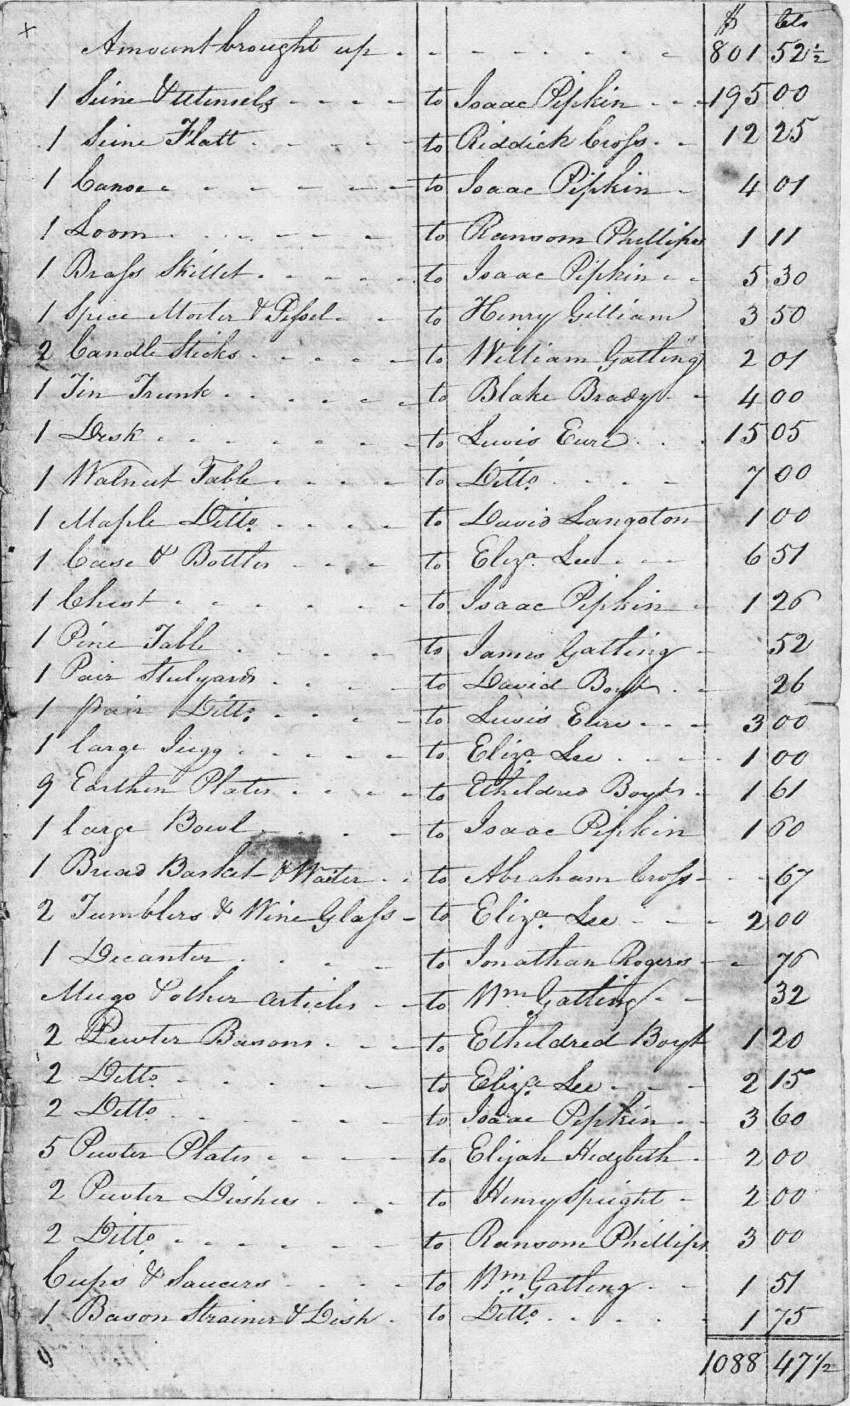 x
$ Cts
Amount brought up - - - - - - - 801 52½
1 Seine & Utensels - - - - to Isaac Pipkin - - - 195 00
1 Seine Flatt - - - - - to Riddick Cross - - 12 25
1 Canoe - - - - - - to Isaac Pipkin - 4 01
1 Loom - - - - - - to Ransom Phillips 1 11
1 Brass Skillet - - - - - to Isaac Pipkin - - 5 30
1 Spice Morter & Pessel - - - to Henry Gilliam 3 50
2 Candle Sticks - - - - - to William Gatling 2 01
1 Tin Trunk - - - - - to Blake Brady - - 4 00
1 Desk - - - - - - - to Lewis Eure - - - 15 05
1 Walnut Table - - - - to Ditto - - - - 7 00
1 Maple Ditto - - - - to David Langston 1 00
1 Case & Bottles - - - - to Eliza. Lee - - - 6 51
1 Chest - - - - - - - to Isaac Pipkin - - 1 26
1 Pine Table - - - - to James Gatling - 52
1 Pair Stulyards - - - - to David Boyt - - 26
1 pair Ditto - - - - to Lewis Eure - - - 3 00
1 large Jugg - - - - - to Eliza. Lee - - - - 1 00
9 Earthen Plates - - - - to Etheldred Boyt - 1 61
1 large Bowl - - - - to Isaac Pipkin 1 60
1 Bread Basket & Waiter - - to Abraham Cross - - - 67
2 Tumblers & Wine Glass - to Eliza. Lee - - - - 2 00
1 Decanter - - - - to Jonathan Rogers - - 76
Mugs & other articles - - to Wm Gatling - - 32
2 Pewter Basons - - - to Etheldred Boyt 1 20
2 Ditto - - - - - - to Eliza. Lee - - - 2 15
2 Ditto - - - - - - to Isaac Pipkin - - 3 60
5 Pewter Plates - - - - to Elijah Hedgbeth - 2 00
2 Pewter Dishes - - - to Henry Speight - 2 00
2 Ditto - - - - - - to Ransom Phillips 3 00
Cups & Saucers - - - - to Wm Gatling - - 1 51
1 Bason Strainer & Dish - to Ditto - - - - - 1 75
1088 47½